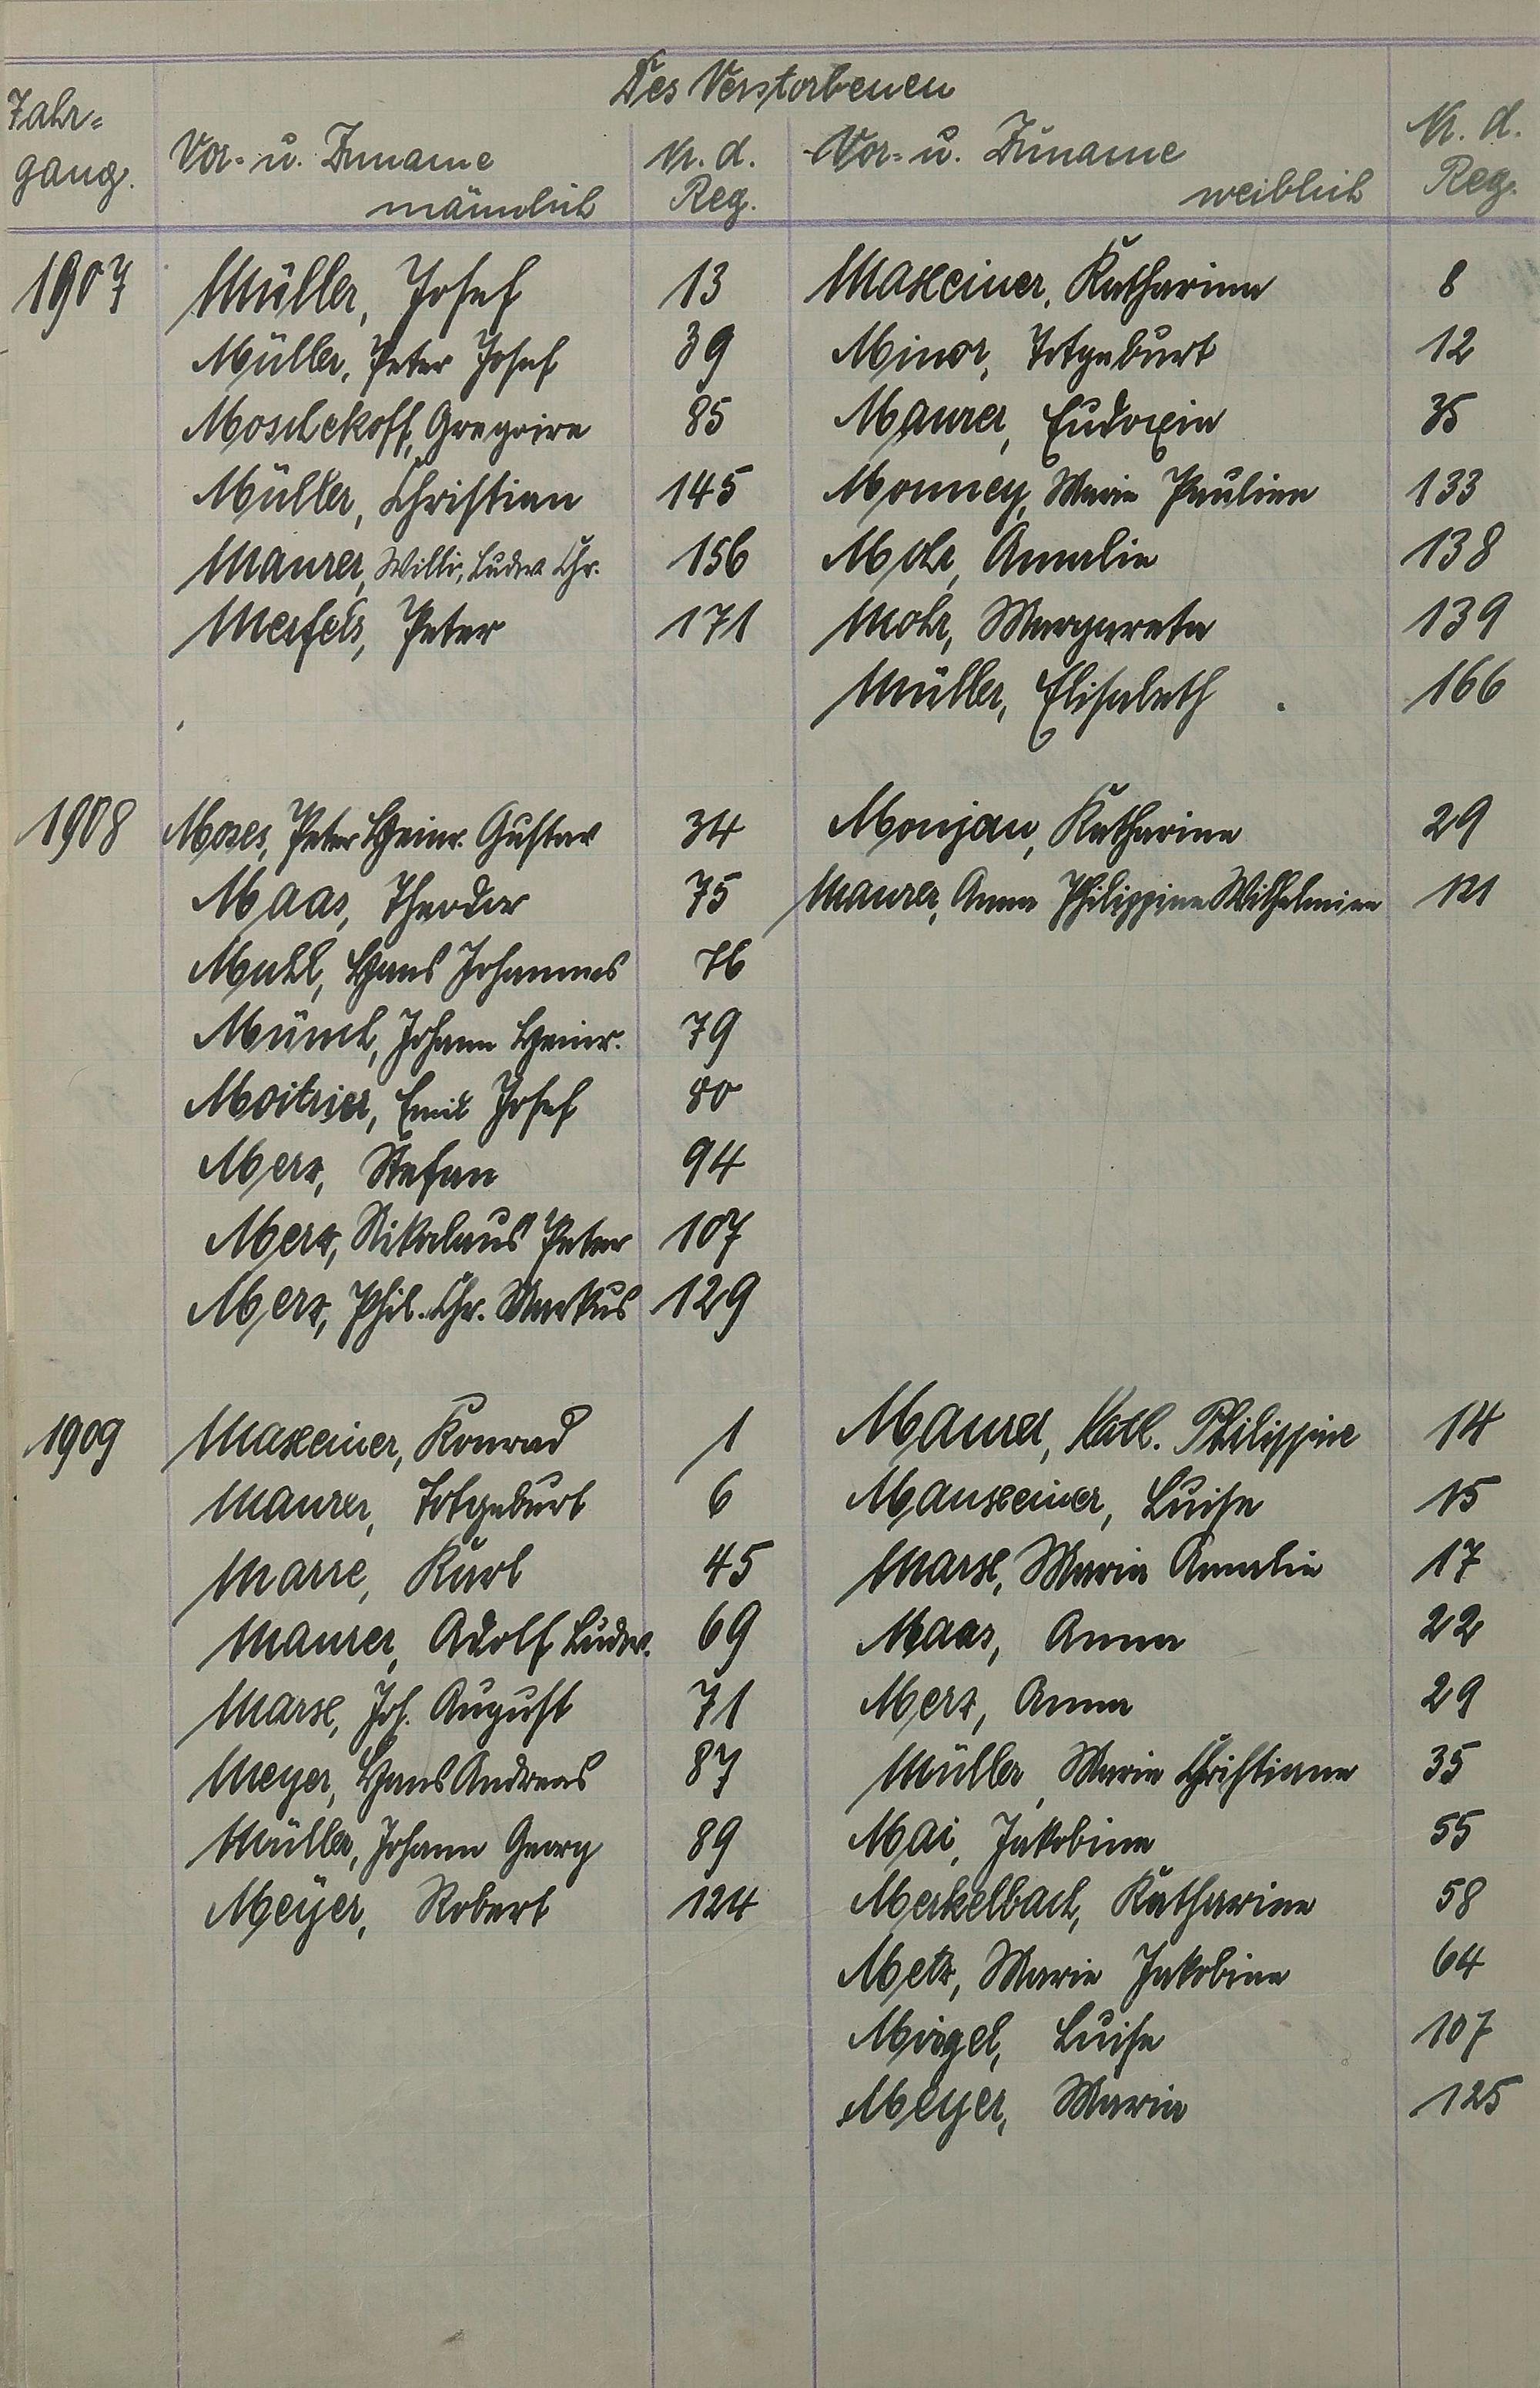 Des Verstorbenen
Jahr=
gang.
Vor- u. Zuname
männlich
N. d.
Reg.
Vor- u. Zuname
weiblich
N. d.
Reg.
1907 Müller, Josef 13 Maxeiner, Katharina 8
Müller, Peter Josef 39 Minor, Totgeburt 12
Moschekoff, Gregoire 85 Maurer, Eudoxia 35
Müller, Christian 145 Monney, Marie Pauline 133
Maurer, Willi, Ludw. Chr. 156 Mohr, Amalie 138
Merfels, Peter 171 Mohr, Margareta 139
Müller, Elisabeth 166
1908 Moses, Peter Heinr. Gustav 34 Monjau, Katharina 29
Maas, Theodor 75 Maurer, Anna Philippine Wilhelmine 121
Muhl, Hans Johannes 76
Münch, Johann Heinr. 79
Moitrier, Emil Josef 80
Merz, Stefan 94
Merz, Nikolaus Peter 107
Merz, Phil. Chr. Markus 129
1909 Maxeiner, Konrad 1 Maurer, Kath. Philippine 14
Maurer, Totgeburt 6 Manxeiner, Luise 15
Marre, Karl 45 Marx, Maria Amalie 17
Maurer, Adolf Ludw. 69 Maas, Anna 22
Marx, Joh. August 71 Merz, Anna 29
Meyer, Hans Andreas 87 Müller, Marie Christiane 35
Müller, Johann Georg 89 Mai, Jakobine 55
Meÿer, Robert 124 Merkelbach, Katharine 58
Metz, Marie Jakobine 64
Luise 107
Meyer, Maria 125